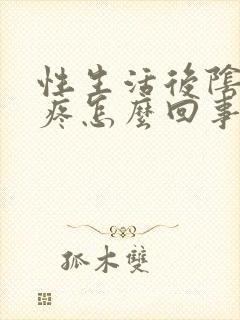 性生活後陰
疼怎麼回事
孤木雙